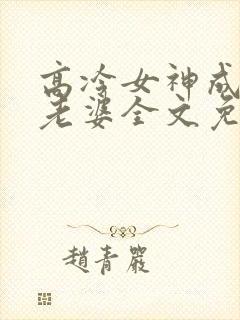 高冷女神成
老婆全文免
趙青嚴